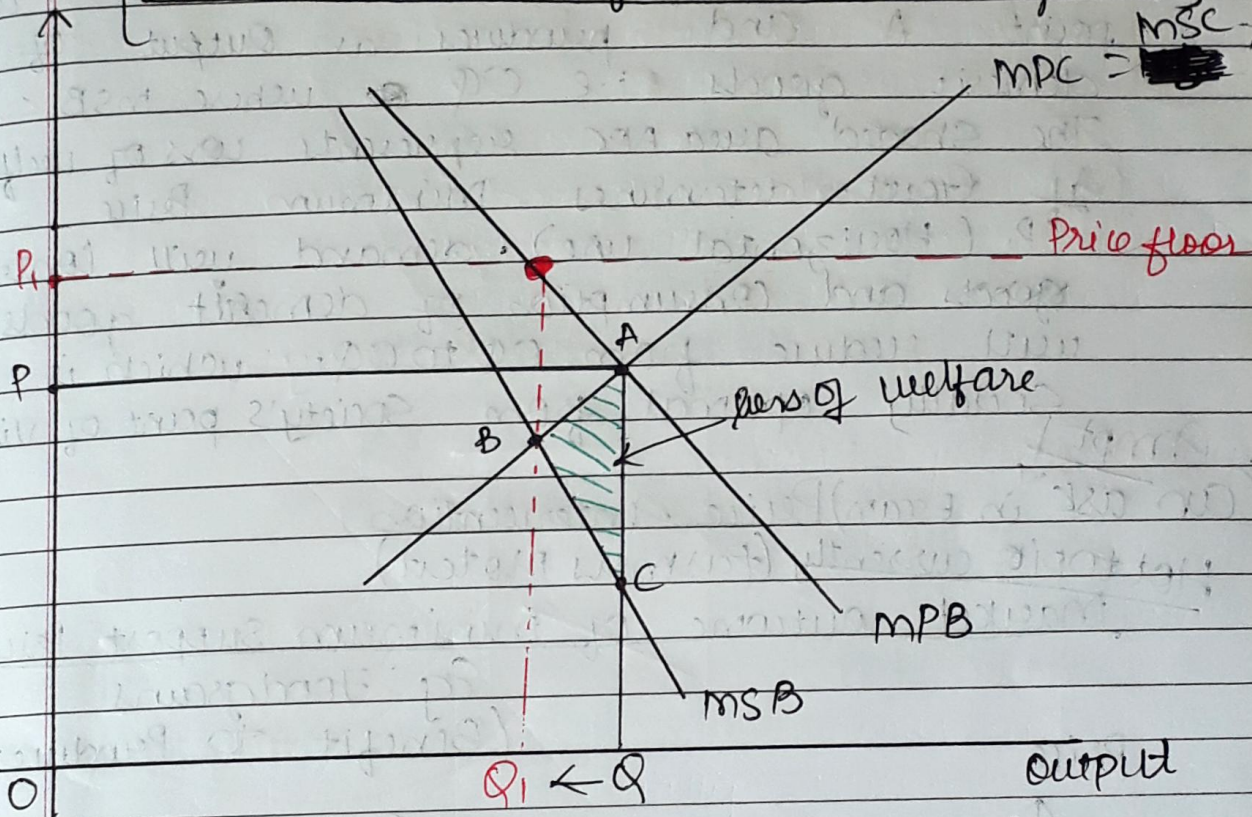 MSC
MPC =
Price floor
P1
A
P
loss of welfare
B
C
MPB
MSB
Q1 ← Q
output
O